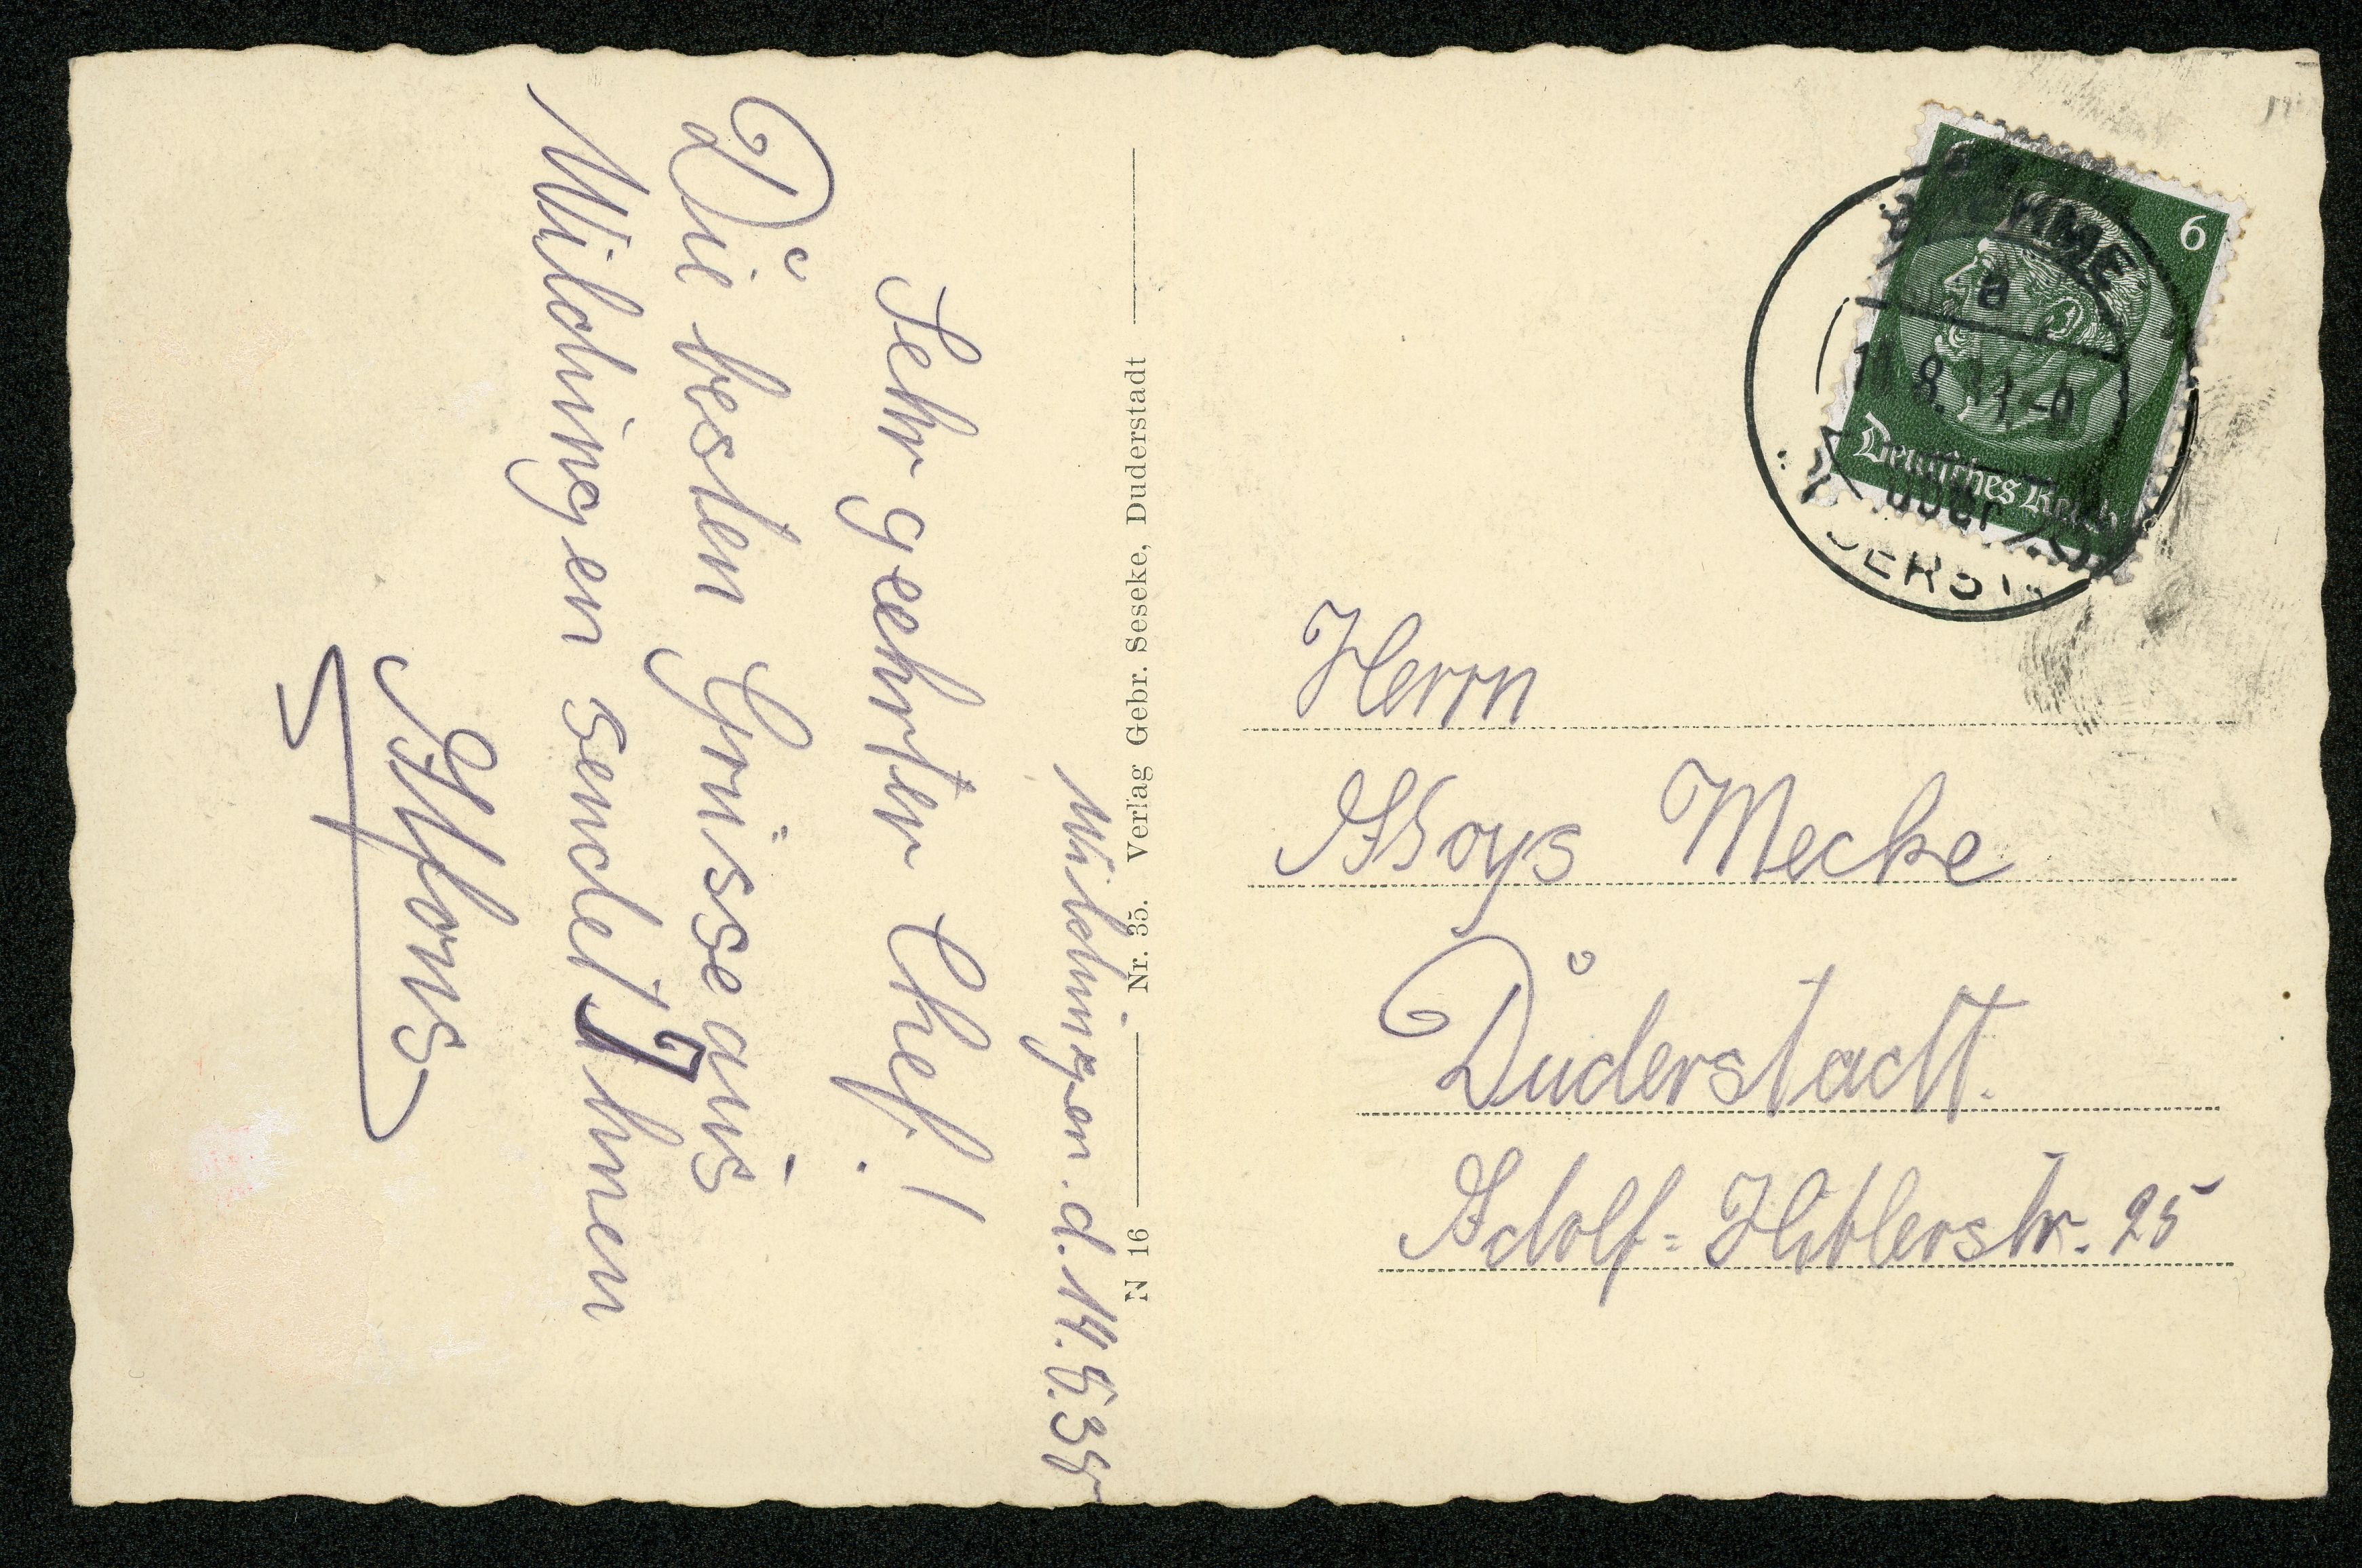 Wildungen. d. 14.8.38
Sehr geehrter Chef!
Die besten Grüsse aus
Wildungen sendet Ihnen
Alfons
N 16
Nr. 35. Verlag Gebr. Seseke, Duderstadt
6
Deutsches Reich
a
über
Herrn
Aloys Mecke
Duderstadt.
Adolf=Hitlerstr. 25